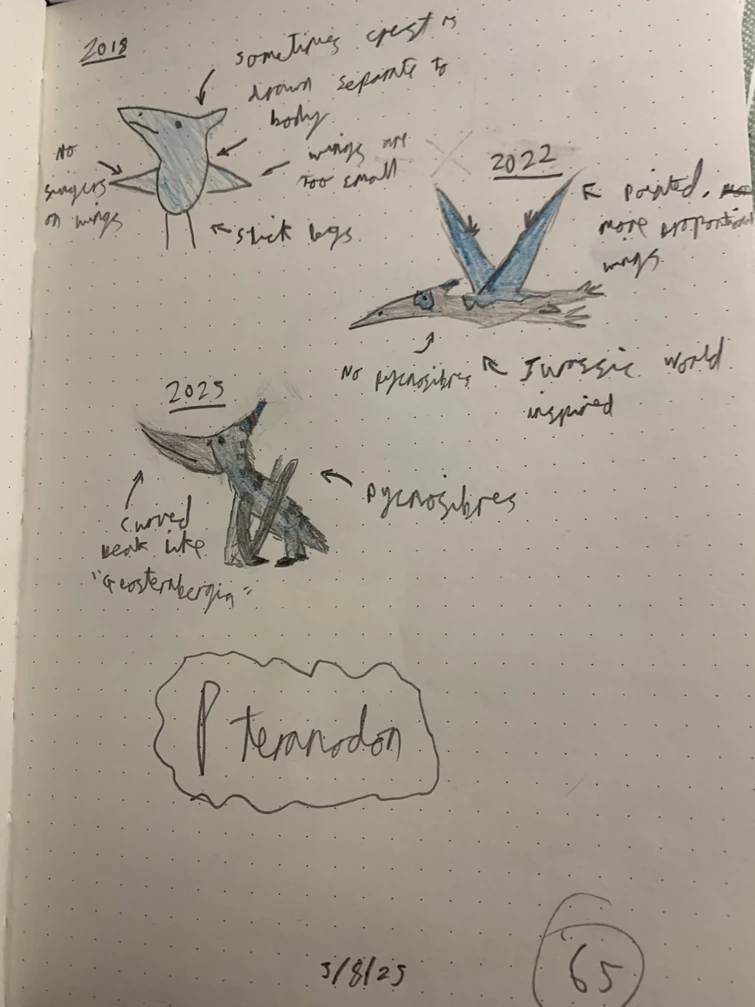 2018
sometimes crest is
drawn separate to
body
No
fingers
on wings
wings are
too small
stick legs
2022
Pointed,
more proportional
wings
No pycnofibres
Jurassic World
inspired
2025
Pycnofibres
Curved
beak like
"Geosternbergia"
Pteranodon
5/8/25
65